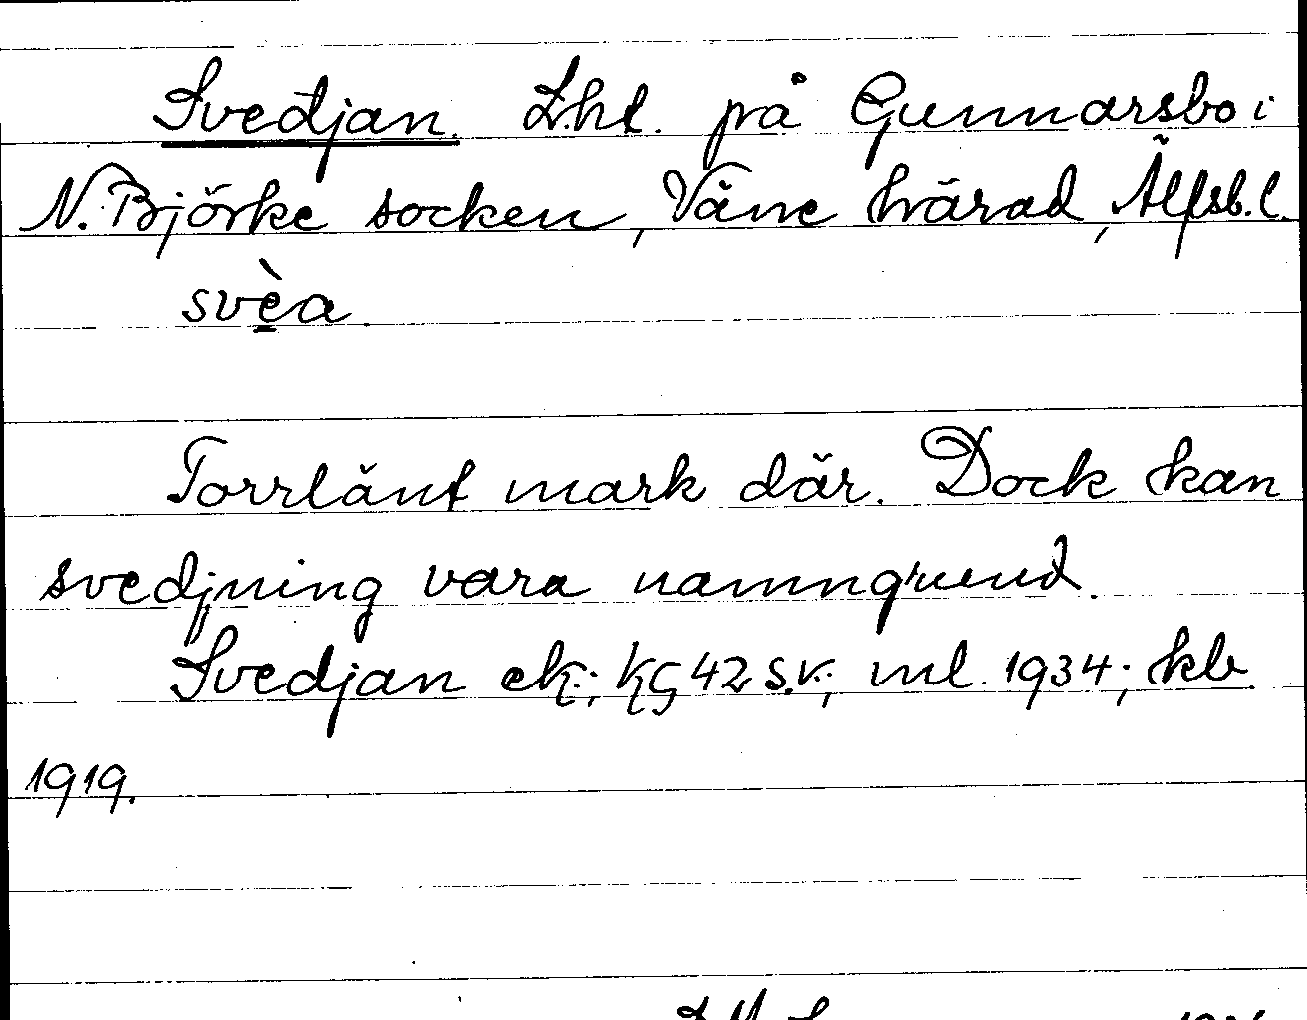 Svedjan. Lht. på Gunnarsbo i
N. Björke socken, Väne härad, Älfsb. l.
svèa
Torrlänt mark där. Dock kan
svedjning vara namngrund.
Svedjan ek.; KG 42 s.v.; ml 1934; kb
1919.